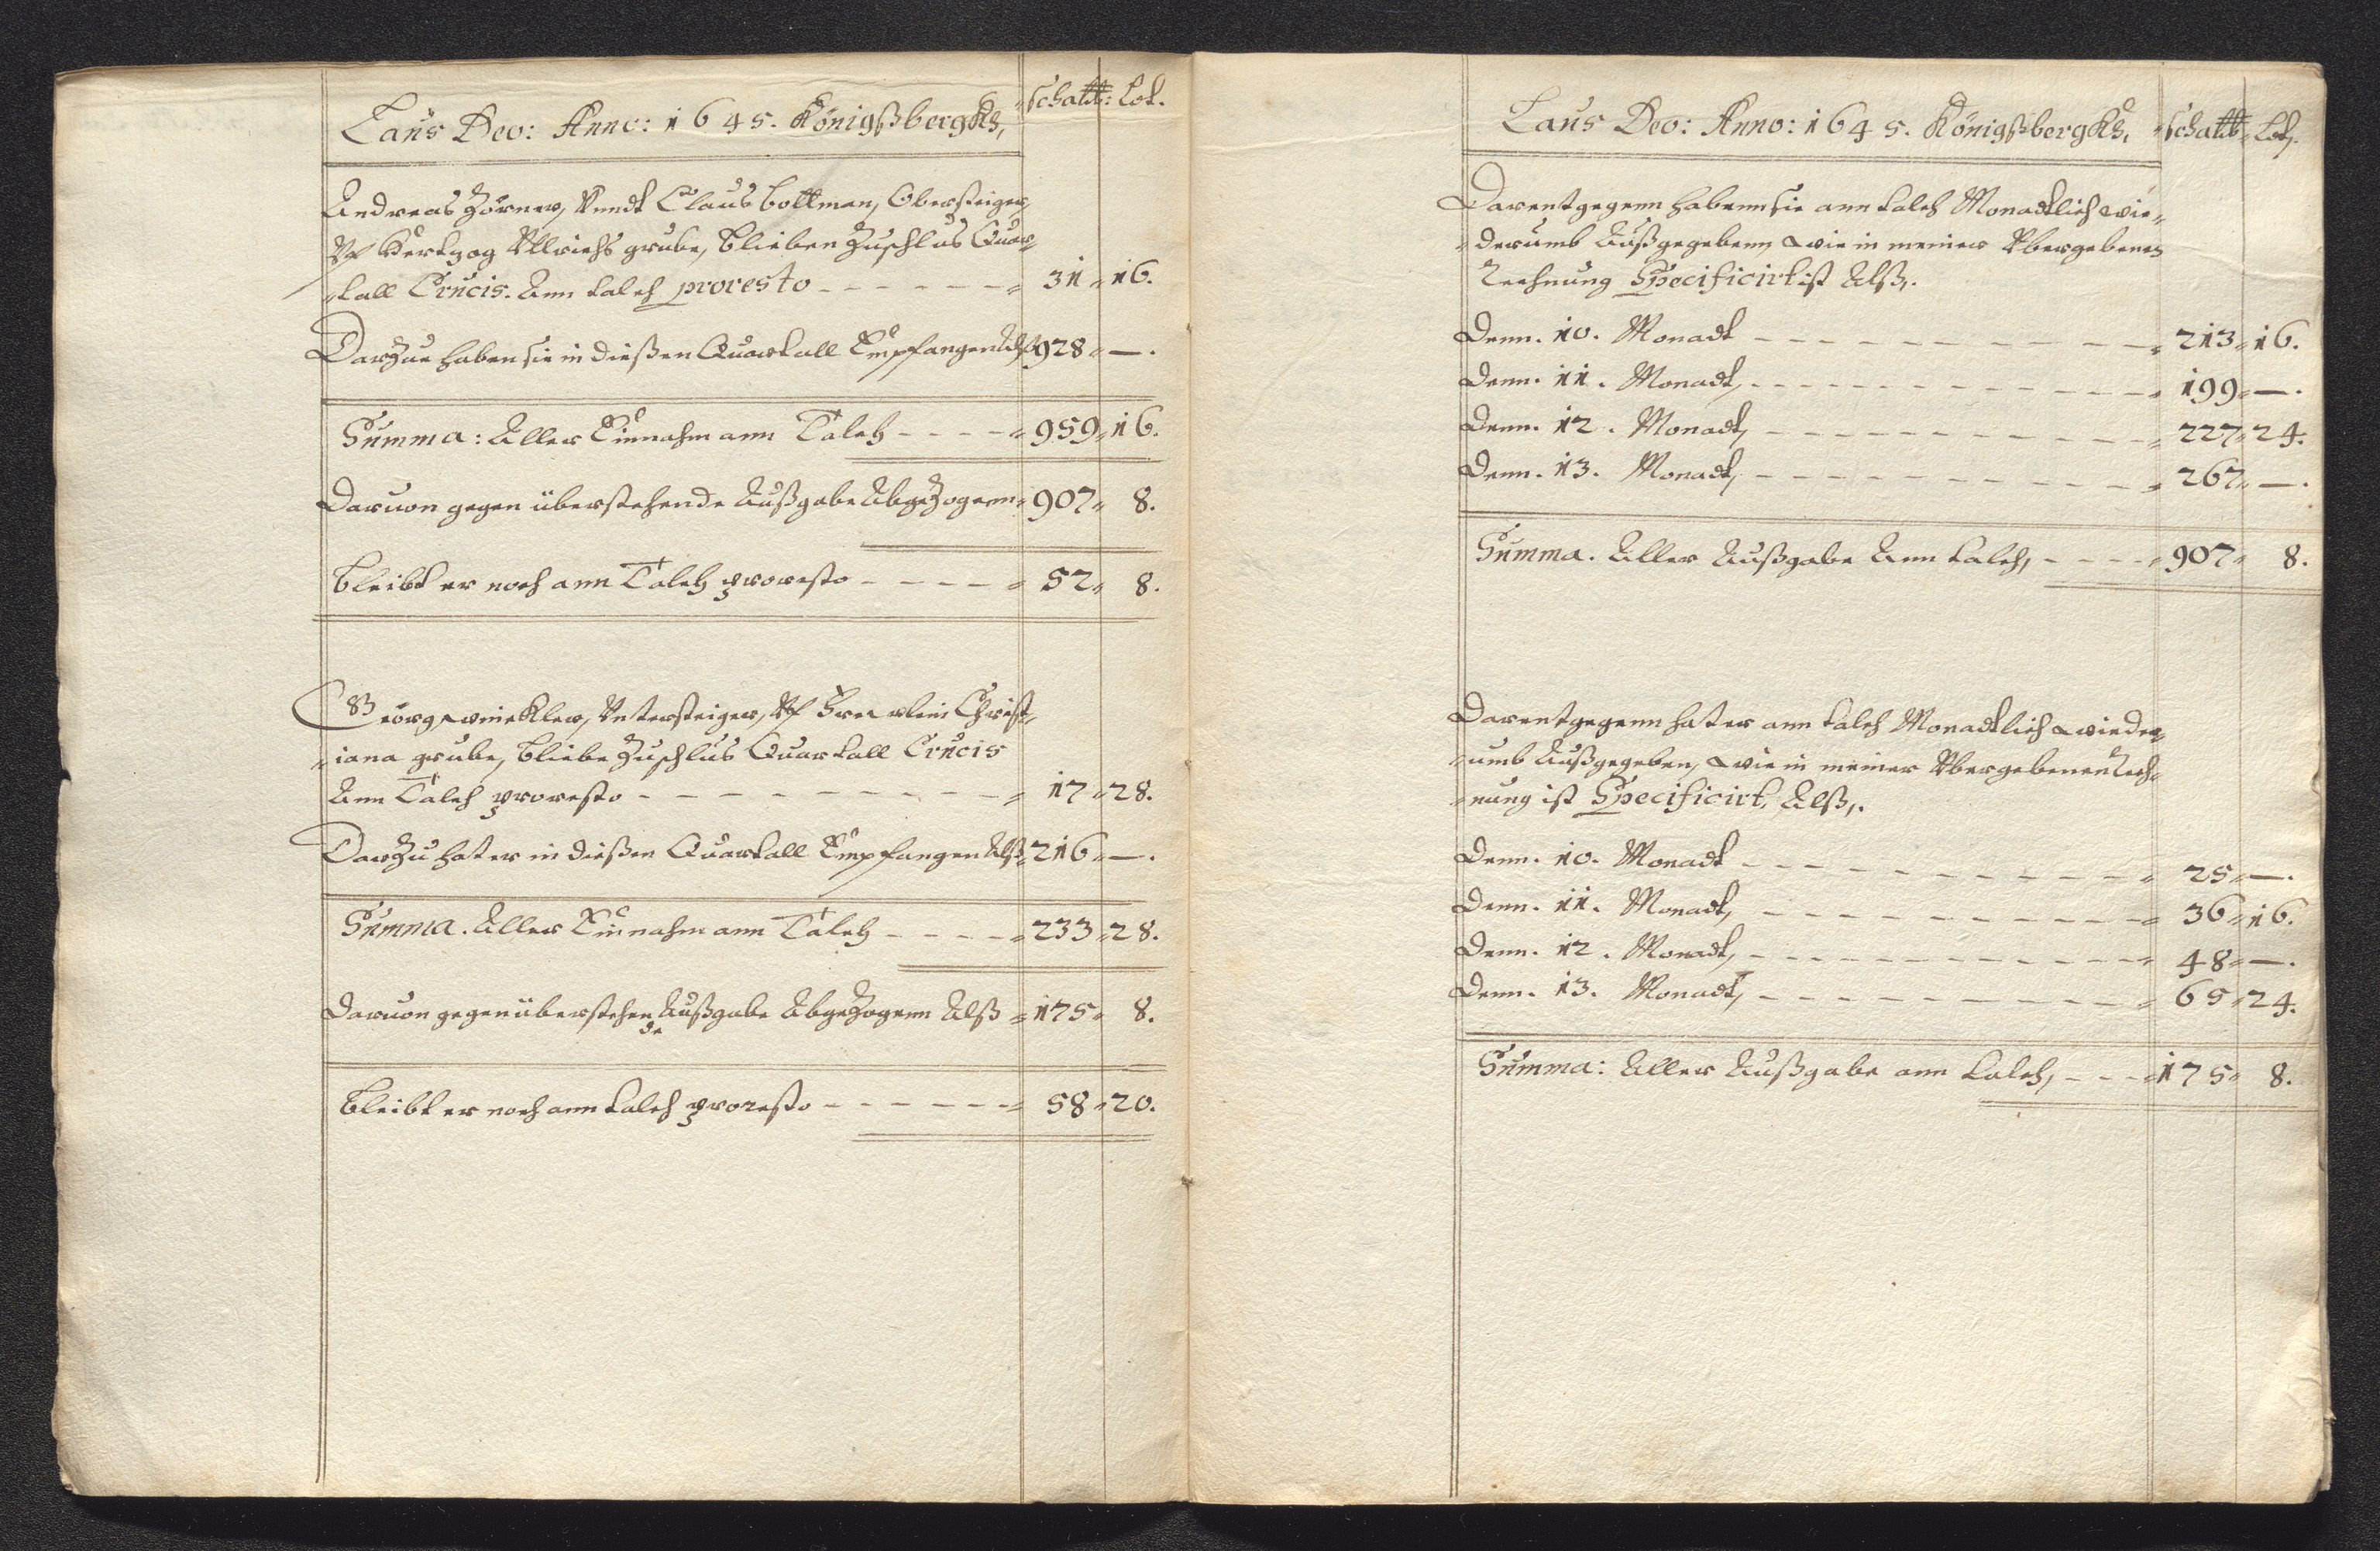 Laus Deo: Anno: 1645. Königßbergks, Schaltt: Lot.
Andreas Zörner, Vnndt Claus bottman, Obersteiger,
Vf Hertzog Vllrichs grube, blieben Zuschlus Quar-
tall Crucis. Ann talch proresto - - - - - - 31 " 16.
Darzue haben sie in dießen Quartall Empfangen Alß 928 " —.
Summa: Aller Einnahm ann Talch - - - - 959 " 16.
Daruon gegen überstehende Außgabe Abgezogenn 907 " 8.
bleibt er noch ann Talch proresto - - - - - 52 " 8.
Georg winckler, Vntersteiger, Vf Freu wlein Christ-
iana grube, bliebe Zuschlus Quartall Crucis
Ann Talch proresto - - - - - - - - - - 17 " 28.
Darzu hat er in dießen Quartall Empfangen Alß 216 " —.
Summa. Aller Einnahm ann Talch - - - - 233 " 28.
Daruon gegenüberstehende Außgabe Abgezogenn Alß 175 " 8.
bleibt er noch ann talch proresto - - - - - - 58 " 20.
Laus Deo: Anno: 1645. Königßbergks, Schaltt: Lot.
Darentgegenn habenn sie ann talch Monadtlich wie-
derumb Außgegebenn, wie in meiner Vbergebenen
Rechnung Specificirt ist Alß,.
Denn. 10. Monadt - - - - - - - - - - - 213 " 16.
Denn. 11. Monadt, - - - - - - - - - - - 199 " —.
Denn. 12. Monadt, - - - - - - - - - - - 227 " 24.
Denn. 13. Monadt, - - - - - - - - - - - 267 " —.
Summa. Aller Außgabe Ann talch, - - - - 907 " 8.
Darentgegenn hat er ann talch Monadtlich wieder-
umb Außgegeben, wie in meiner Vbergebenen Rech-
nung ist Specificirt, Alß,.
Denn. 10. Monadt - - - - - - - - - - - 25 " —.
Denn. 11. Monadt, - - - - - - - - - - - 36 " 16.
Denn. 12. Monadt, - - - - - - - - - - - 48 " —.
Denn. 13. Monadt, - - - - - - - - - - - 65 " 24.
Summa: Aller Außgabe ann talch, - - - 175 " 8.